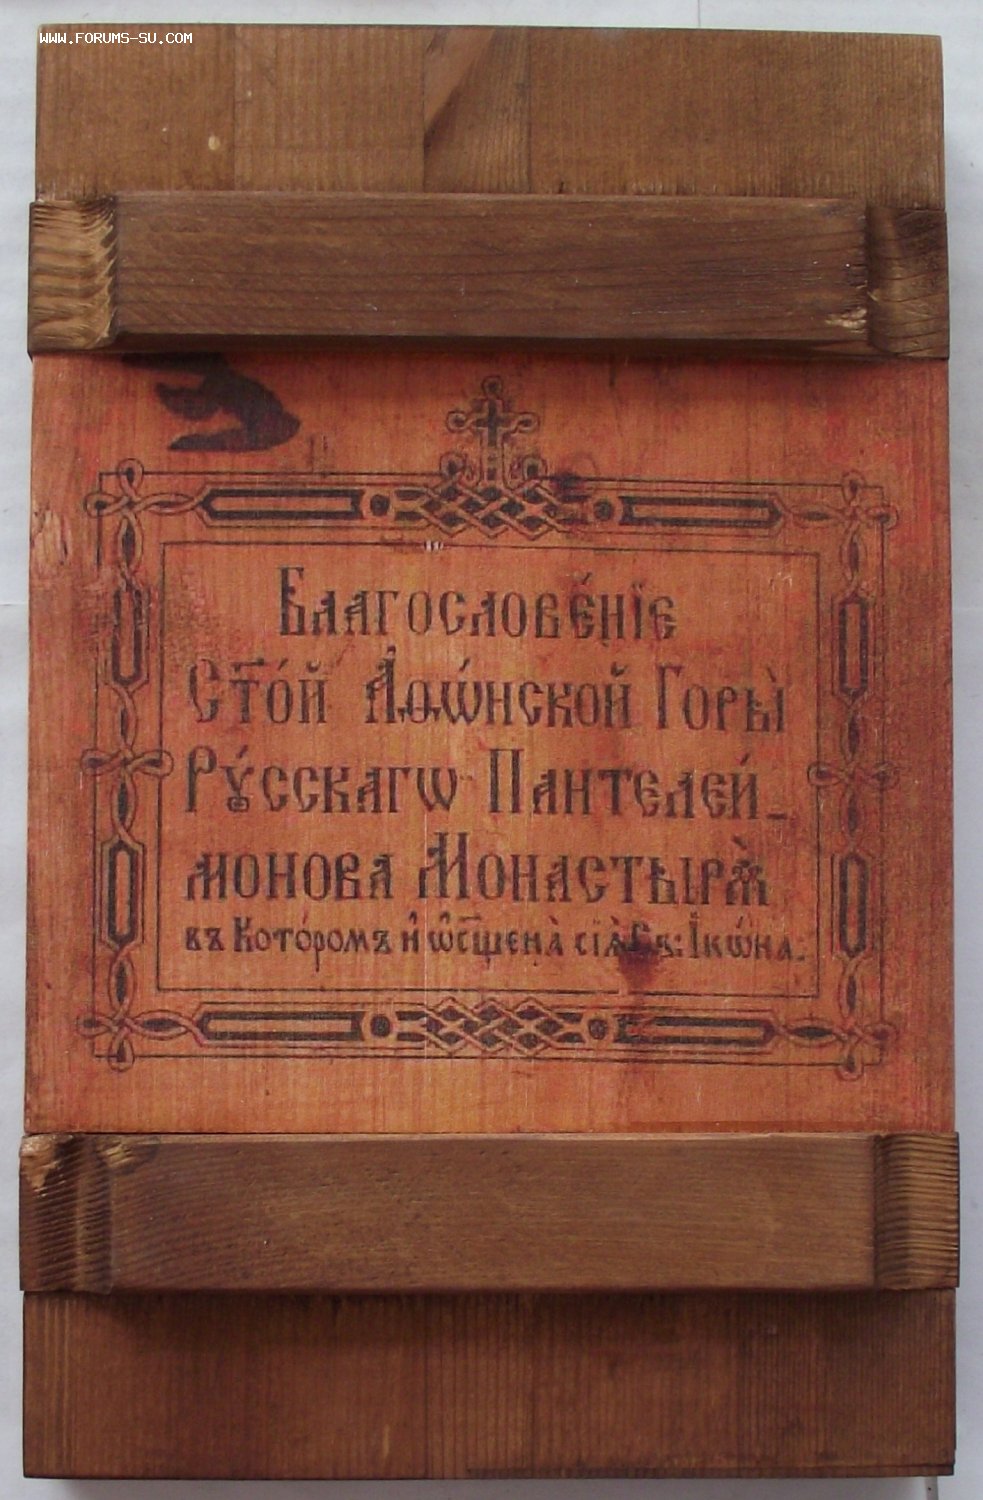 WWW.FORUMS-SU.COM
Благослове́нїе
Ст҃о́й Аѳѡ́нской Горы̀
Рꙋ́сскагѡ Пантелей_
монова Монастырѧ̀
въ Кото́ромъ и҆ ѡ҆сщ҃ена̀ сїѧ̀ Св: Їкѡ́на.